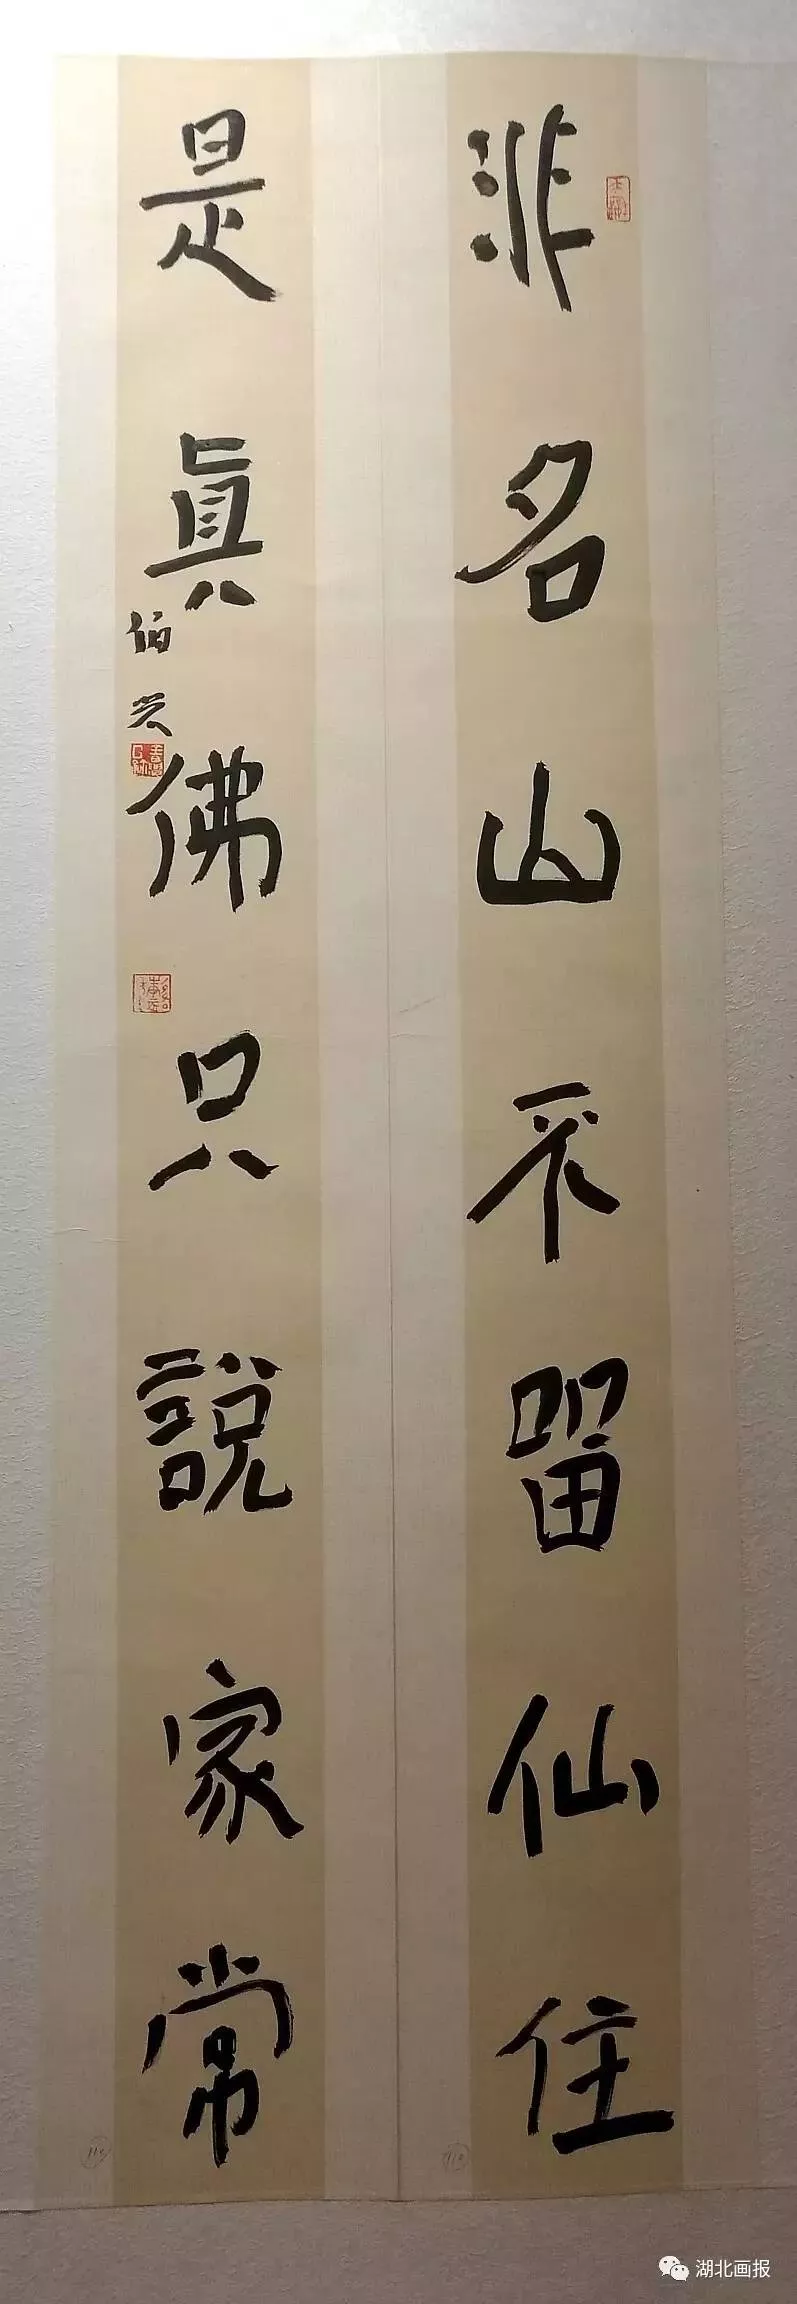 非名山不留仙住
是眞佛只說家常
伯
110
110
湖北画报